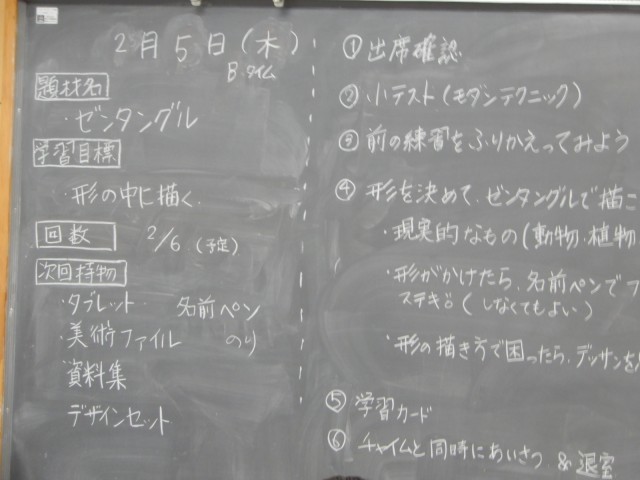 2月5日(木)
Bタイム
題材名
・ゼンタングル
学習目標
・形の中に描く.
回数 2/6 (予定)
次回持物
・タブレット・ 名前ペン
・美術ファイル のり
資料集
デザインセット
① 出席確認
② 小テスト(モダンテクニック)
③ 前の練習をふりかえってみよう
④ 形を決めて、ゼンタングルで描こ
・現実的なもの(動物・植物
・形がかけたら、名前ペンで
(しなくてもよい)
・形の描き方で困ったら、デッサンを
⑤ 学習カード
⑥ チャイムと同時にあいさつ & 退室